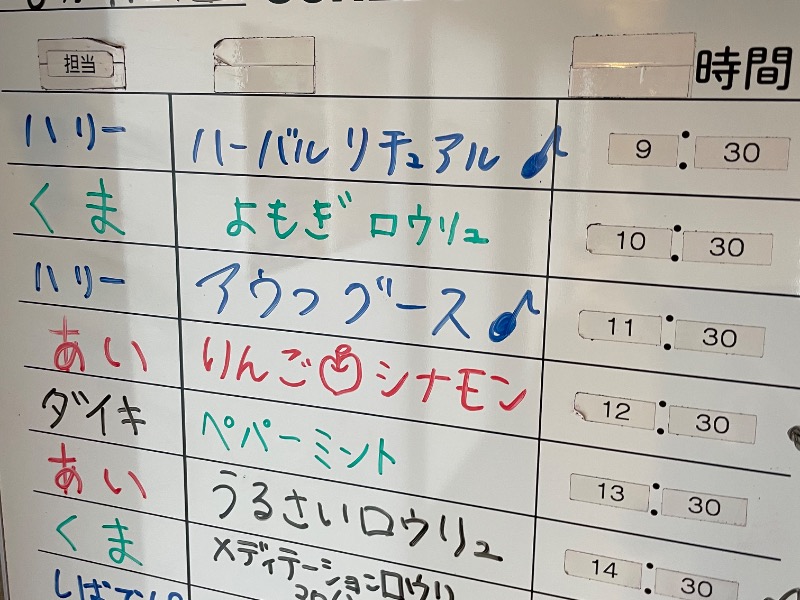 担当 時間
ハリー ハーバルリチュアル♪ 9:30
くま よもぎロウリュ 10:30
ハリー アウフグース♪ 11:30
あい りんご シナモン 12:30
ダイキ ペパーミント 13:30
あい うるさいロウリュ 14:30
くま メディテーションロウリ